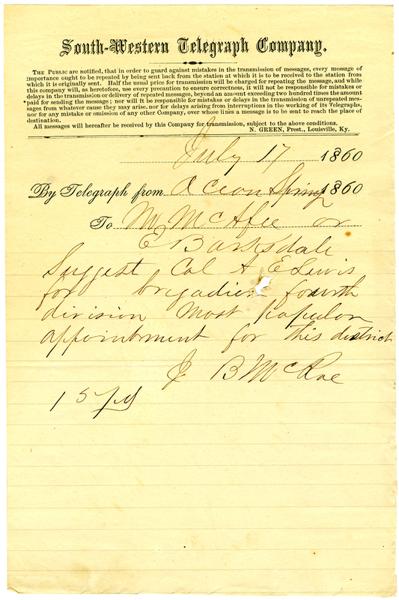 South-Western Telegraph Company.
THE PUBLIC are notified, that in order to guard against mistakes in the transmission of messages, every message of
importance ought to be repeated by being sent back from the station at which it is to be received to the station from
which it is originally sent. Half the usual price for transmission will be charged for repeating the message, and while
this company will, as heretofore, use every precaution to ensure correctness, it will not be responsible for mistakes or
delays in the transmission or delivery of repeated messages, beyond an amount exceeding two hundred times the amount
paid for sending the message; nor will it be responsible for mistakes or delays in the transmission of unrepeated mes-
sages from whatever cause they may arise, nor for delays arising from interruptions in the working of its Telegraphs,
nor for any mistake or omission of any other Company, over whose lines a message is to be sent to reach the place of
destination.
All messages will hereafter be received by this Company for transmission, subject to the above conditions.
N. GREEN, Prest., Louisville, Ky.
July 17 1860
By Telegraph from Ocean Springs 1860
To M McAfee or
E Barksdale
Suggest Col A E Lewis
for brigadier fourth
division Most popular
appointment for this district
J B McRae